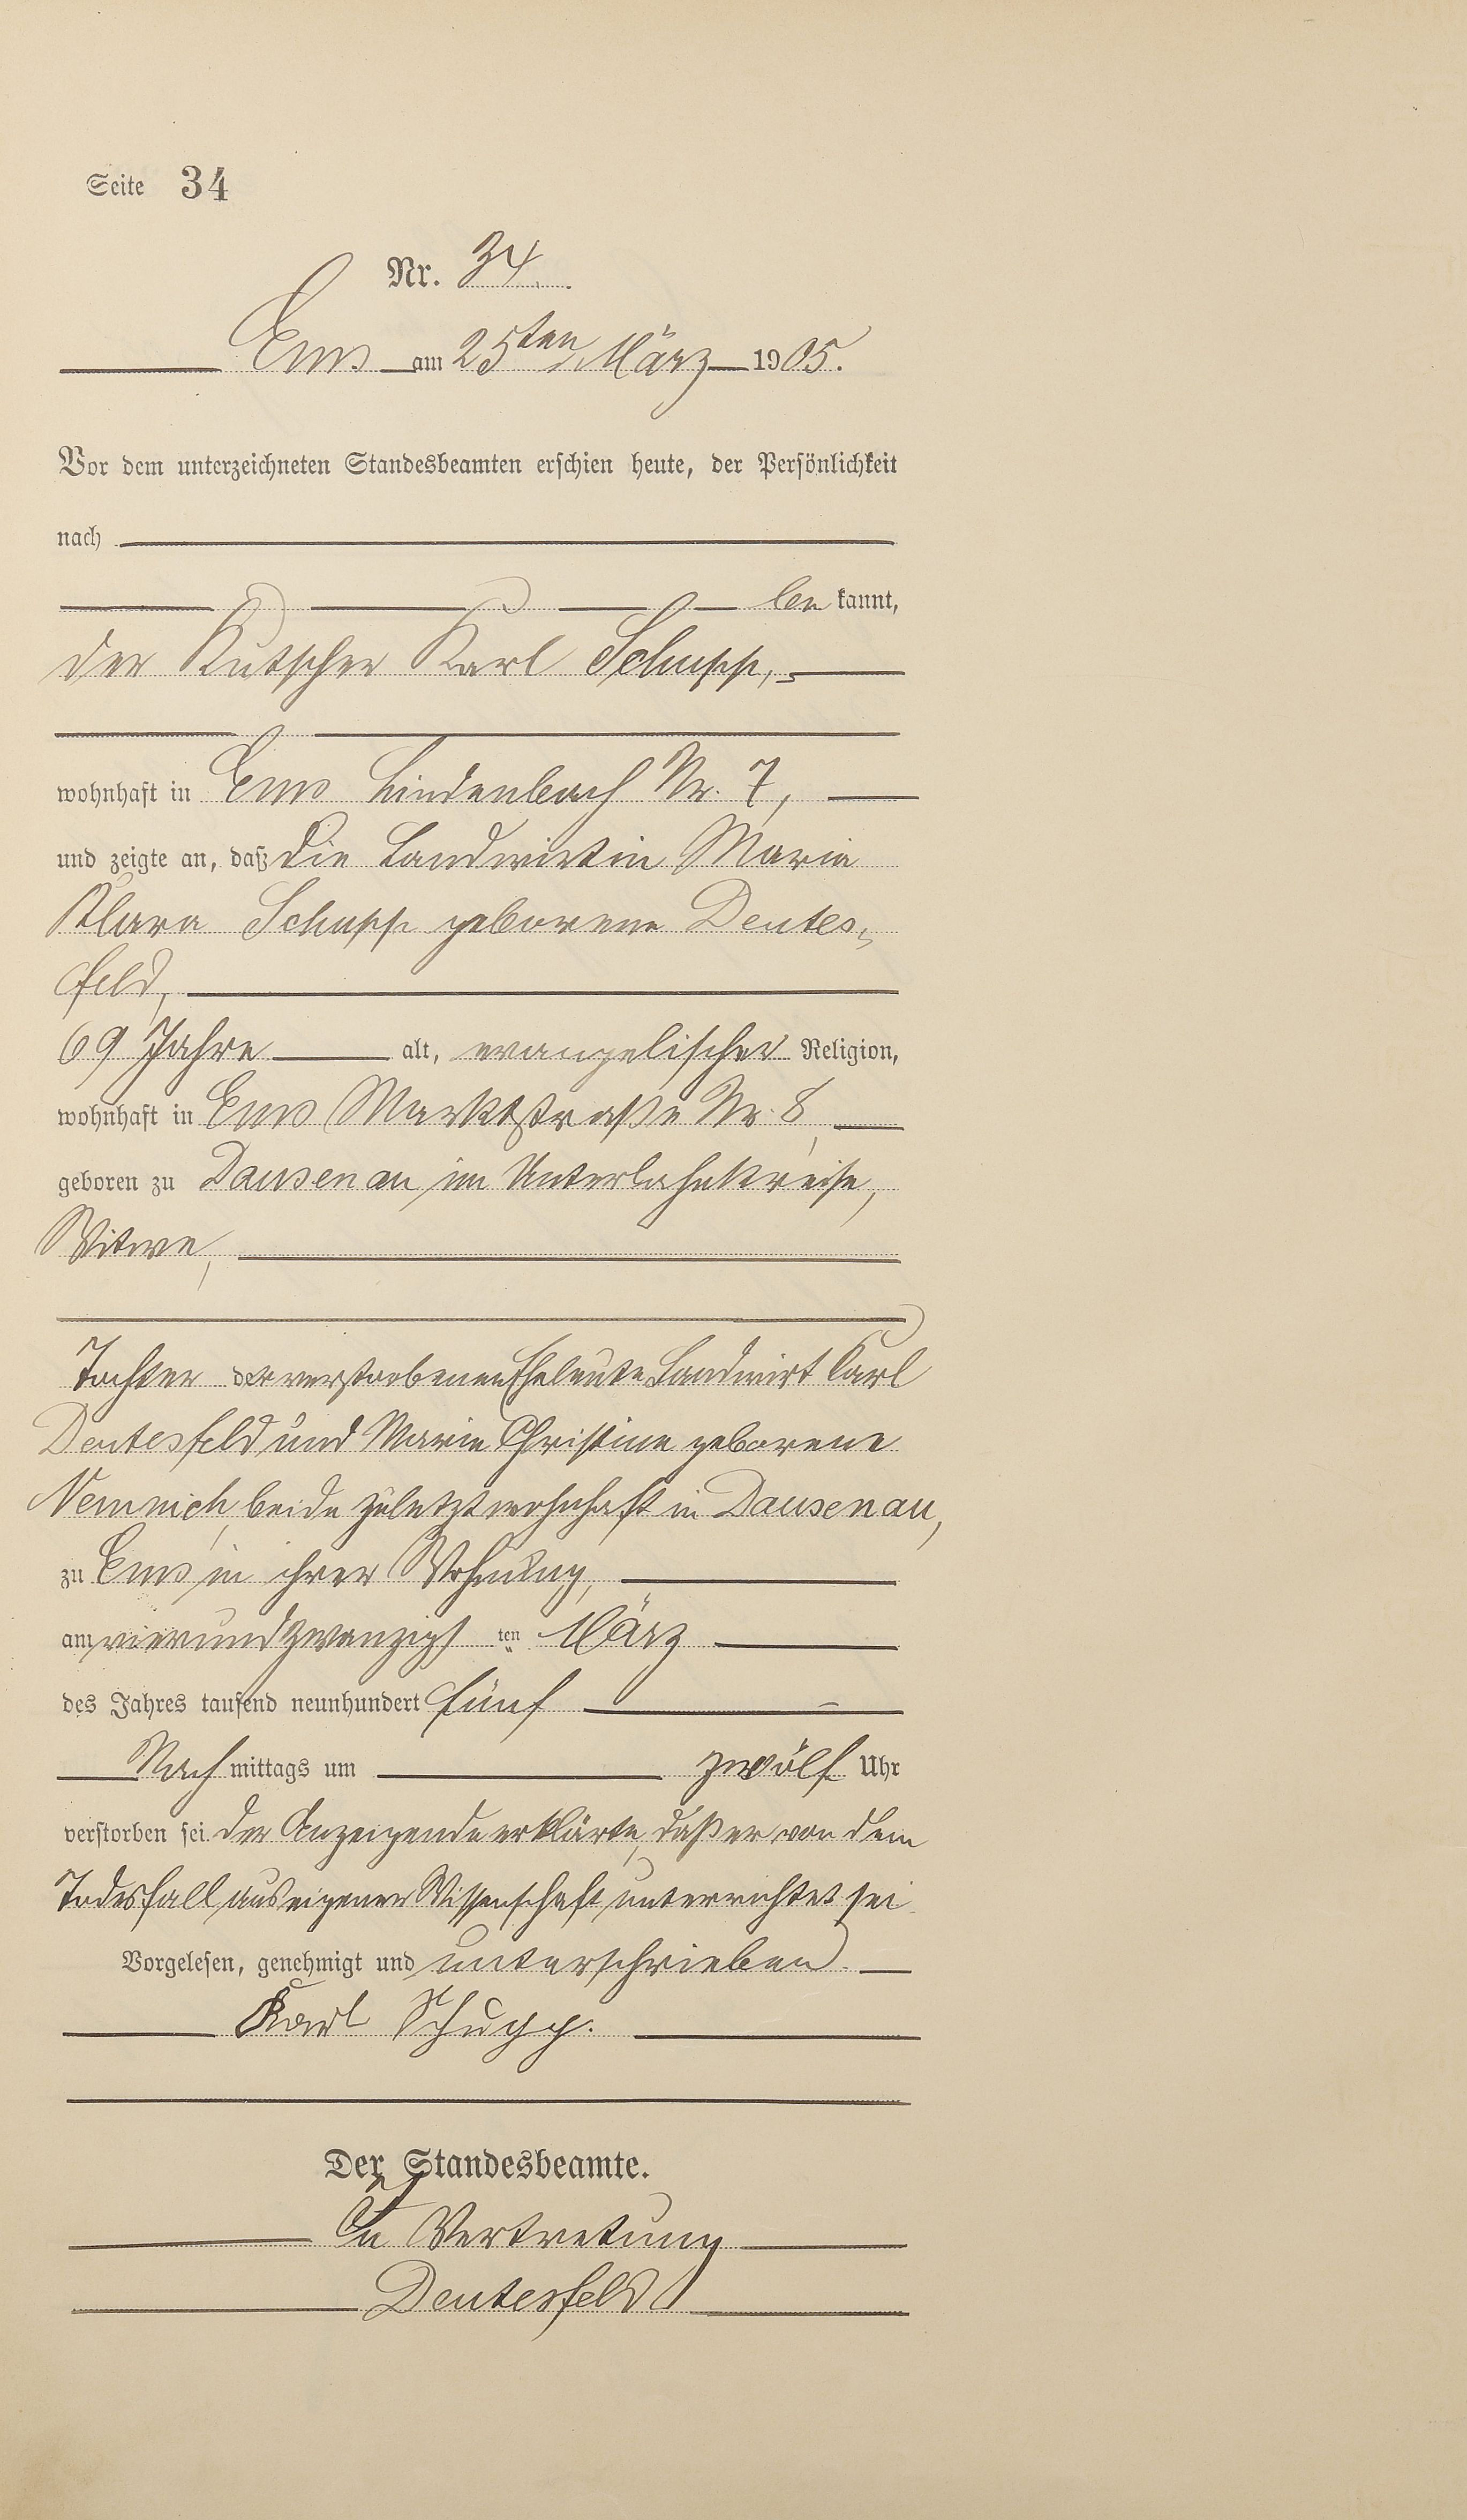 Seite 34
Nr. 34.
Ems am 25ten März 1905.
Vor dem unterzeichneten Standesbeamten erschien heute, der Persönlichkeit
nach
be kannt,
der Kutscher Karl Schupp,
wohnhaft in Ems Lindenbach Nr. 7,
und zeigte an, daß die Landwirtin Maria
Klara Schupp geborene Deutes-
feld,
69 Jahre alt, evangelischer Religion,
wohnhaft in Ems Marktstraße Nr. 8,
geboren zu Dausenau im Unterlahnkreise,
Witwe,
Tochter der verstorbenen Eheleute Landwirt Karl
Deutesfeld und Maria Christina geborene
Nemnich, beide zuletzt wohnhaft in Dausenau,
zu Ems in ihrer Wohnung,
am vierundzwanzigs ten März
des Jahres tausend neunhundert fünf
Nach mittags um zwölf Uhr
verstorben sei. Der Anzeigende erklärte, daß er von dem
Todesfall aus eigener Wissenschaft unterrichtet sei.
Vorgelesen, genehmigt und unterschrieben.
Karl Schupp.
Der Standesbeamte.
In Vertretung
Deutesfeld